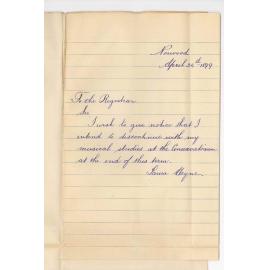 Norwood
April 26th 1899
To the Registrar
Sir
I wish to give notice that I
intend to discontinue with my
musical studies at the Conservatorium
at the end of this term.
Laura